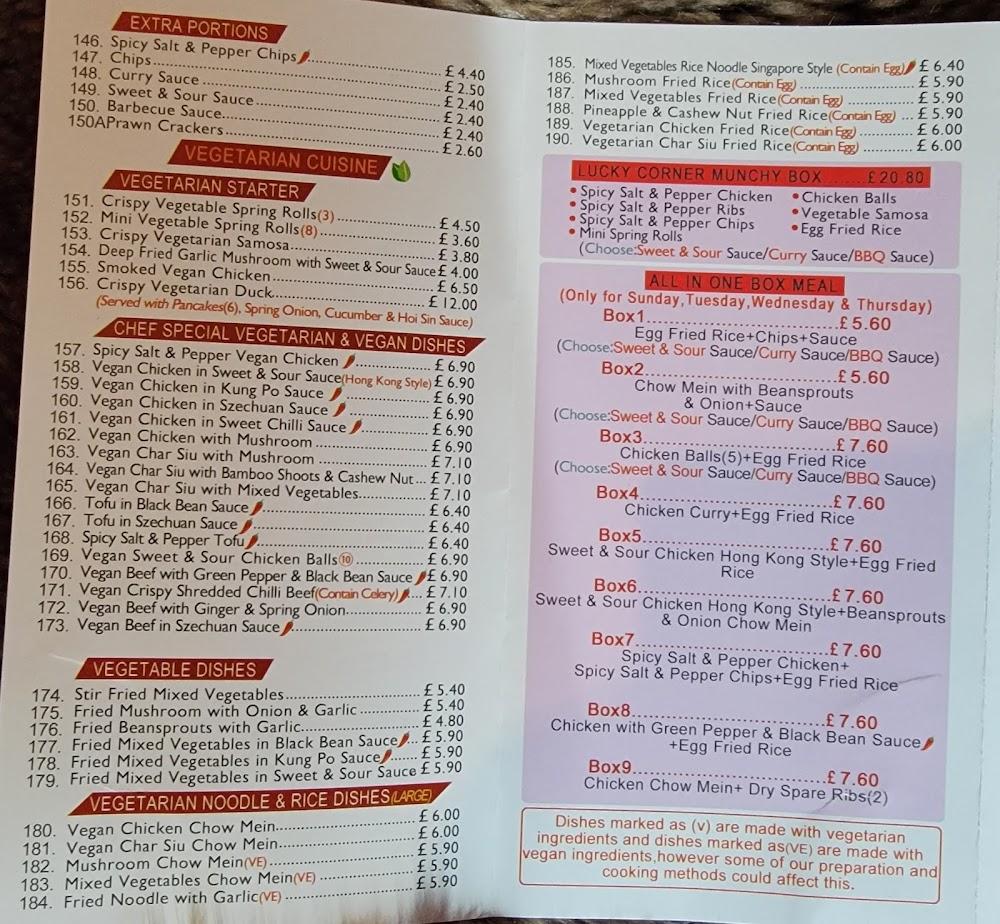 EXTRA PORTIONS
146. Spicy Salt & Pepper Chips ............ £ 4.40
147. Chips ............ £ 2.50
148. Curry Sauce ............ £ 2.40
149. Sweet & Sour Sauce ............ £ 2.40
150. Barbecue Sauce ............ £ 2.40
150APrawn Crackers ............ £ 2.60
VEGETARIAN CUISINE
VEGETARIAN STARTER
151. Crispy Vegetable Spring Rolls(3) ............ £ 4.50
152. Mini Vegetable Spring Rolls(8) ............ £ 3.60
153. Crispy Vegetarian Samosa ............ £ 3.80
154. Deep Fried Garlic Mushroom with Sweet & Sour Sauce £ 4.00
155. Smoked Vegan Chicken ............ £ 6.50
156. Crispy Vegetarian Duck ............ £ 12.00
(Served with Pancakes(6), Spring Onion, Cucumber & Hoi Sin Sauce)
CHEF SPECIAL VEGETARIAN & VEGAN DISHES
157. Spicy Salt & Pepper Vegan Chicken ............ £ 6.90
158. Vegan Chicken in Sweet & Sour Sauce(Hong Kong Style) £ 6.90
159. Vegan Chicken in Kung Po Sauce ............ £ 6.90
160. Vegan Chicken in Szechuan Sauce ............ £ 6.90
161. Vegan Chicken in Sweet Chilli Sauce ............ £ 6.90
162. Vegan Chicken with Mushroom ............ £ 6.90
163. Vegan Char Siu with Mushroom ............ £ 7.10
164. Vegan Char Siu with Bamboo Shoots & Cashew Nut ... £ 7.10
165. Vegan Char Siu with Mixed Vegetables ............ £ 7.10
166. Tofu in Black Bean Sauce ............ £ 6.40
167. Tofu in Szechuan Sauce ............ £ 6.40
168. Spicy Salt & Pepper Tofu ............ £ 6.40
169. Vegan Sweet & Sour Chicken Balls(10) ............ £ 6.90
170. Vegan Beef with Green Pepper & Black Bean Sauce £ 6.90
171. Vegan Crispy Shredded Chilli Beef(Contain Celery) ... £ 7.10
172. Vegan Beef with Ginger & Spring Onion ............ £ 6.90
173. Vegan Beef in Szechuan Sauce ............ £ 6.90
VEGETABLE DISHES
174. Stir Fried Mixed Vegetables ............ £ 5.40
175. Fried Mushroom with Onion & Garlic ............ £ 5.40
176. Fried Beansprouts with Garlic ............ £ 4.80
177. Fried Mixed Vegetables in Black Bean Sauce ... £ 5.90
178. Fried Mixed Vegetables in Kung Po Sauce ...... £ 5.90
179. Fried Mixed Vegetables in Sweet & Sour Sauce £ 5.90
VEGETARIAN NOODLE & RICE DISHES(LARGE)
180. Vegan Chicken Chow Mein ............ £ 6.00
181. Vegan Char Siu Chow Mein ............ £ 6.00
182. Mushroom Chow Mein(VE) ............ £ 5.90
183. Mixed Vegetables Chow Mein(VE) ............ £ 5.90
184. Fried Noodle with Garlic(VE) ............ £ 5.90
185. Mixed Vegetables Rice Noodle Singapore Style (Contain Egg) £ 6.40
186. Mushroom Fried Rice(Contain Egg) ............ £ 5.90
187. Mixed Vegetables Fried Rice(Contain Egg) ............ £ 5.90
188. Pineapple & Cashew Nut Fried Rice(Contain Egg) ... £ 5.90
189. Vegetarian Chicken Fried Rice(Contain Egg) ............ £ 6.00
190. Vegetarian Char Siu Fried Rice(Contain Egg) ............ £ 6.00
LUCKY CORNER MUNCHY BOX .......£20.80
• Spicy Salt & Pepper Chicken • Chicken Balls
• Spicy Salt & Pepper Ribs • Vegetable Samosa
• Spicy Salt & Pepper Chips • Egg Fried Rice
• Mini Spring Rolls
(Choose:Sweet & Sour Sauce/Curry Sauce/BBQ Sauce)
ALL IN ONE BOX MEAL
(Only for Sunday,Tuesday,Wednesday & Thursday)
Box1............£5.60
Egg Fried Rice+Chips+Sauce
(Choose:Sweet & Sour Sauce/Curry Sauce/BBQ Sauce)
Box2............£5.60
Chow Mein with Beansprouts
& Onion+Sauce
(Choose:Sweet & Sour Sauce/Curry Sauce/BBQ Sauce)
Box3............£7.60
Chicken Balls(5)+Egg Fried Rice
(Choose:Sweet & Sour Sauce/Curry Sauce/BBQ Sauce)
Box4............£7.60
Chicken Curry+Egg Fried Rice
Box5............£7.60
Sweet & Sour Chicken Hong Kong Style+Egg Fried
Rice
Box6............£7.60
Sweet & Sour Chicken Hong Kong Style+Beansprouts
& Onion Chow Mein
Box7............£7.60
Spicy Salt & Pepper Chicken+
Spicy Salt & Pepper Chips+Egg Fried Rice
Box8............£7.60
Chicken with Green Pepper & Black Bean Sauce
+Egg Fried Rice
Box9............£7.60
Chicken Chow Mein+ Dry Spare Ribs(2)
Dishes marked as (v) are made with vegetarian
ingredients and dishes marked as(VE) are made with
vegan ingredients,however some of our preparation and
cooking methods could affect this.